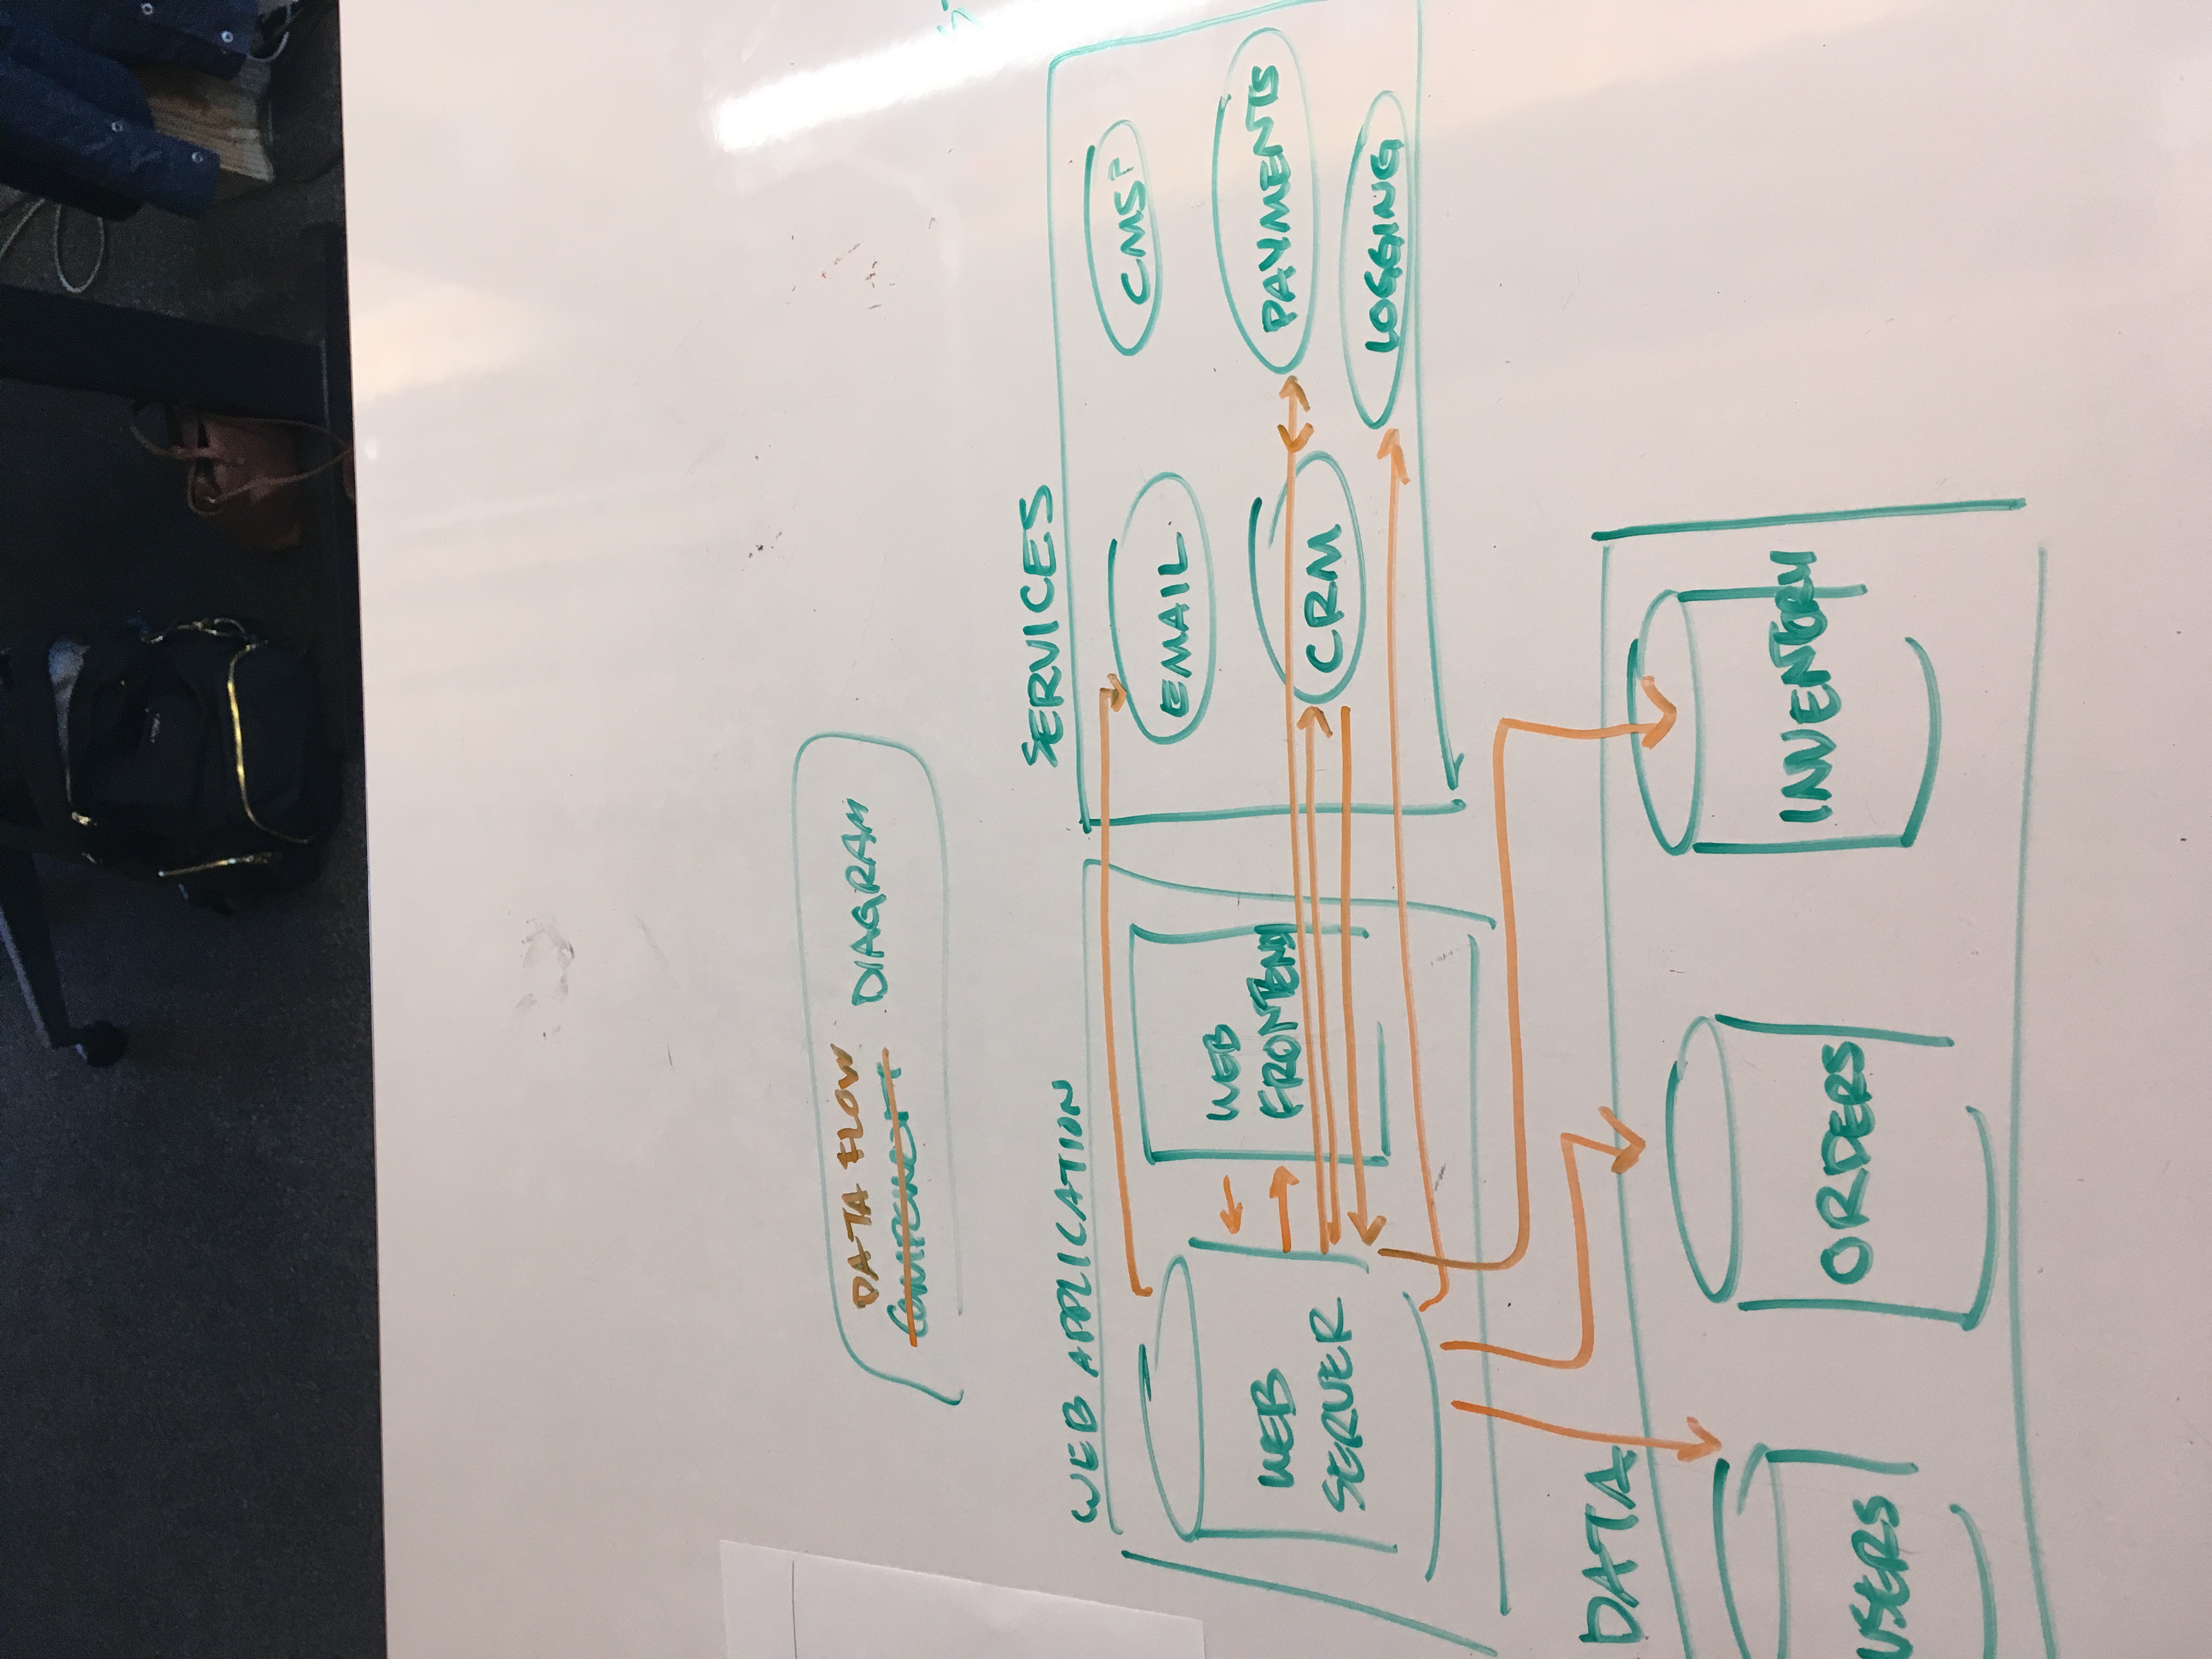 DATA FLOW
COMPONENT DIAGRAM
WEB APPLICATION
SERVICES
WEB
SERVER
WEB
FRONTEND
EMAIL
CMS?
CRM
PAYMENTS
LOGGING
DATA
USERS
ORDERS
INVENTORY